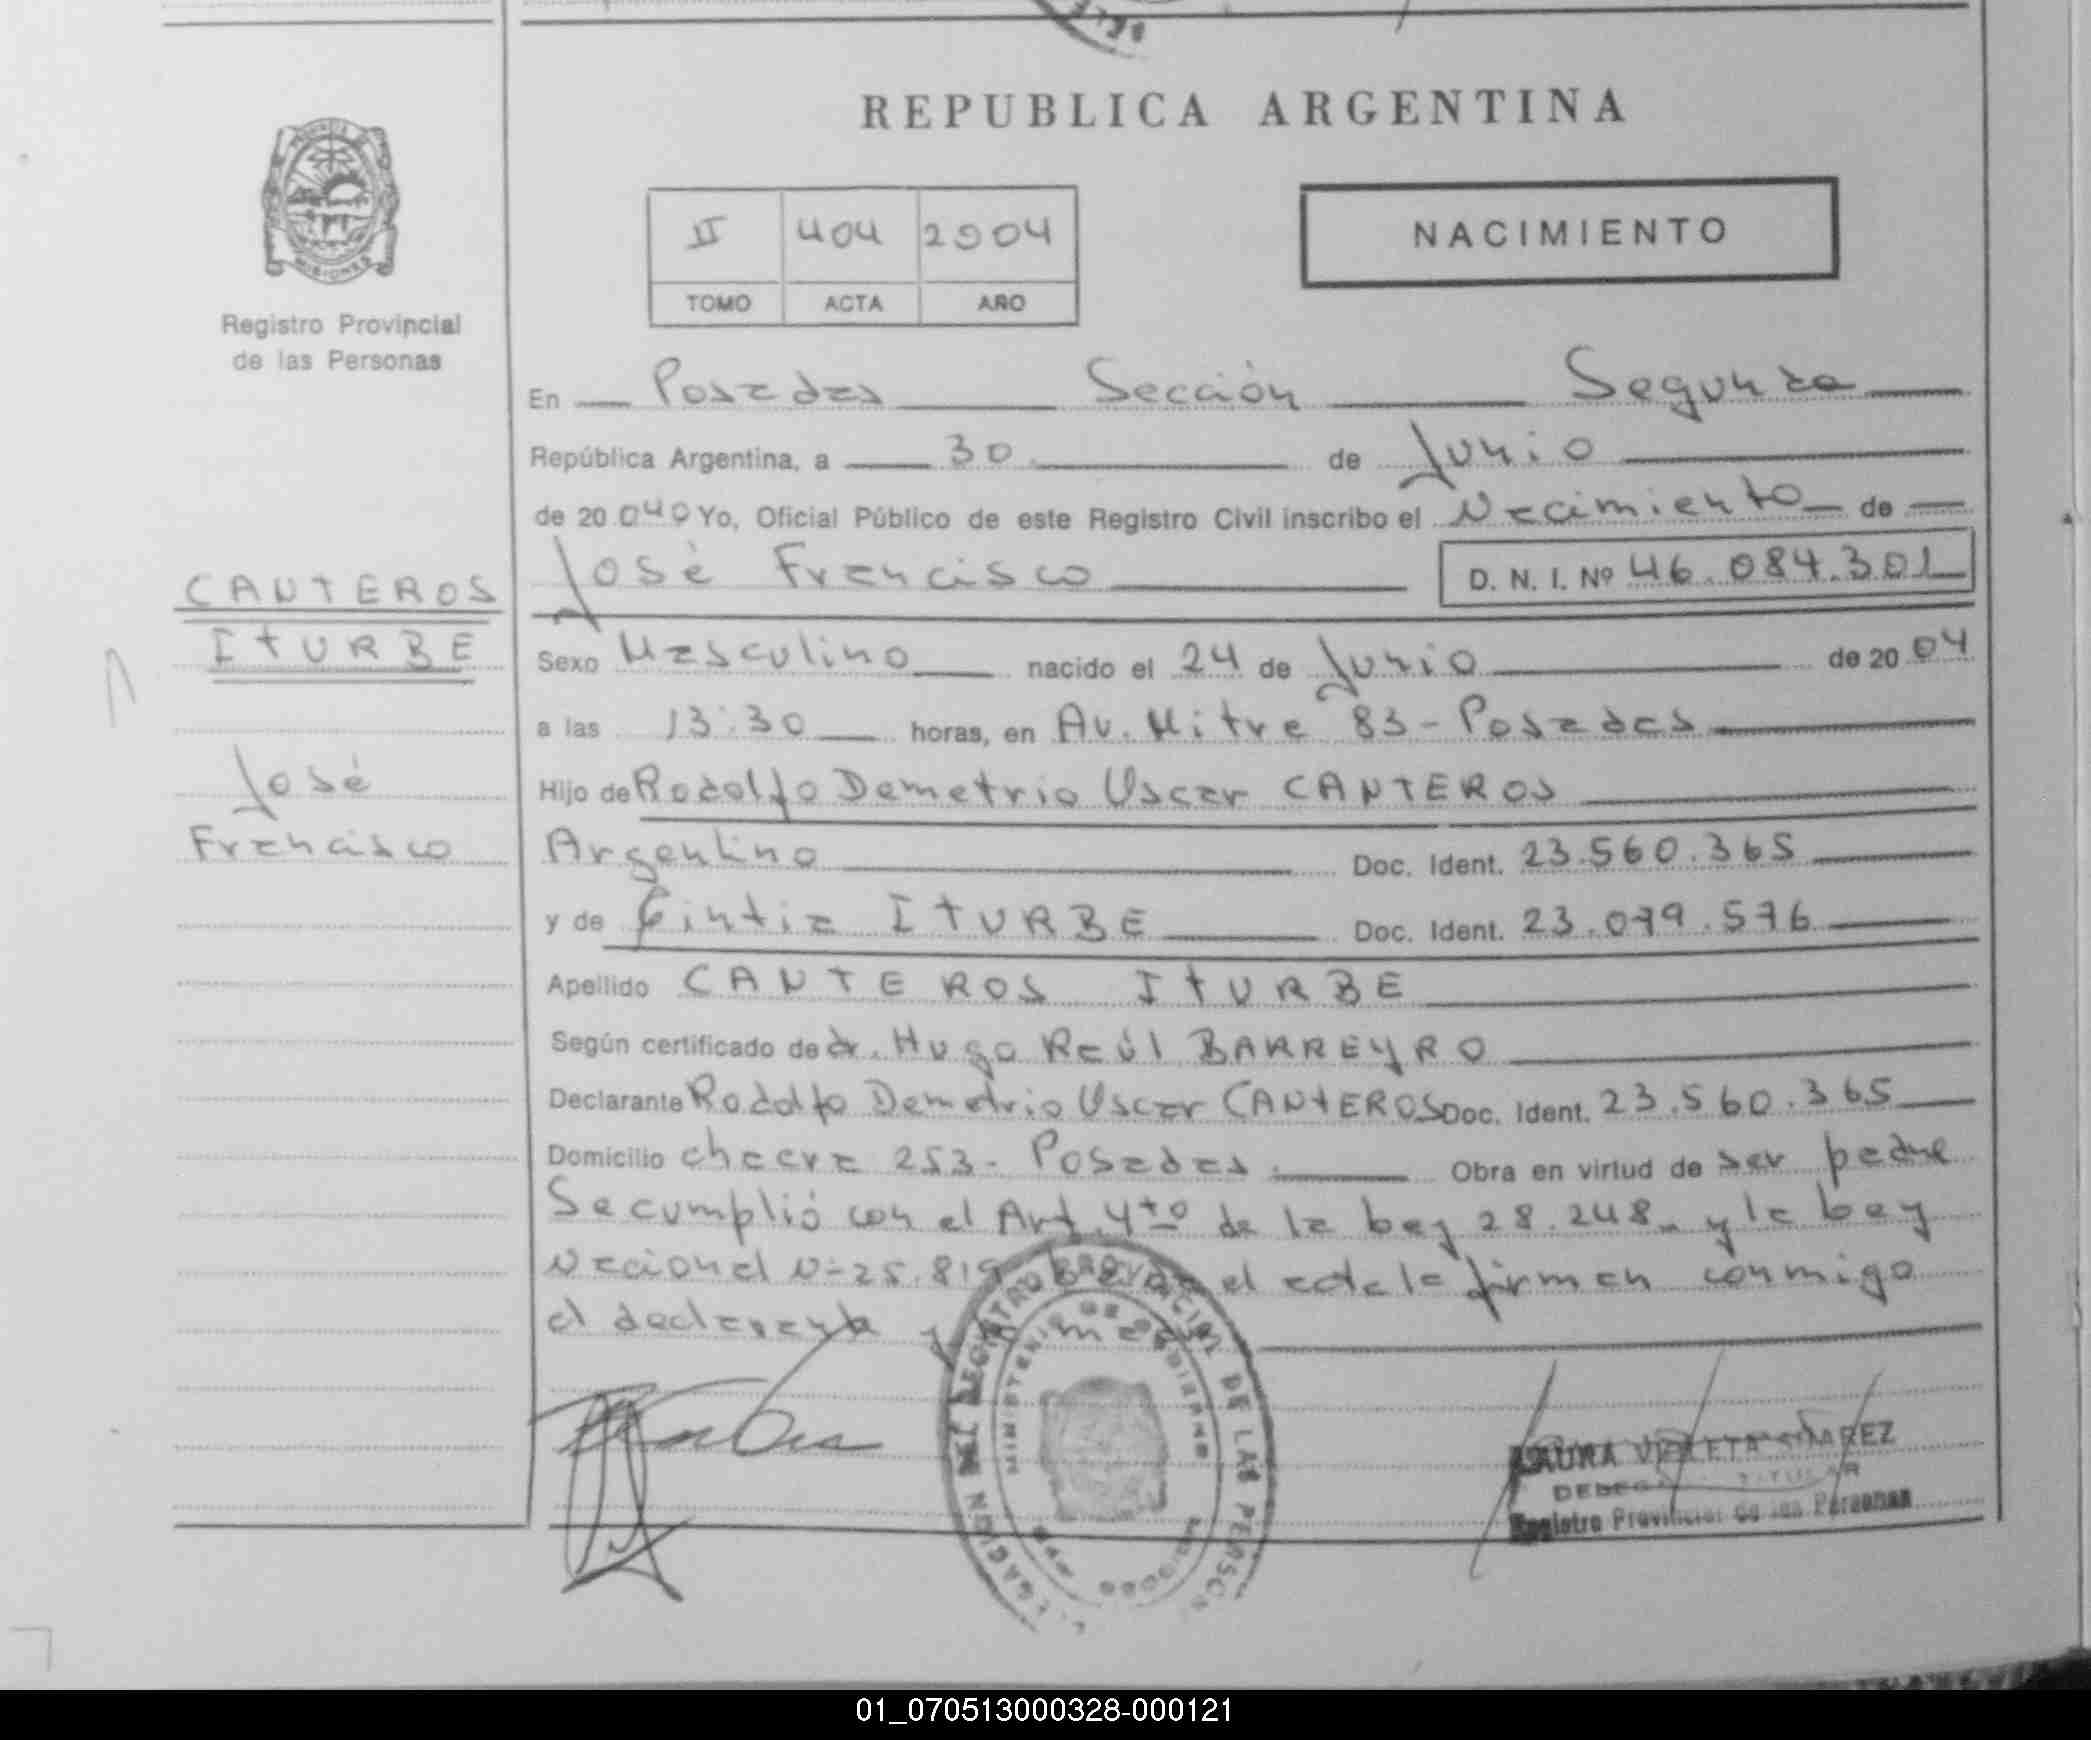 REPUBLICA ARGENTINA
MISIONES
Registro Provincial
de las Personas
II 404 2004
TOMO ACTA AÑO
NACIMIENTO
En Posadas Sección Segunda
República Argentina, a 30 de Junio
de 20 04 Yo, Oficial Público de este Registro Civil inscribo el Nacimiento de
José Francisco D. N. I. Nº 46.084.301
CANTEROS
ITURBE
José
Francisco
Sexo Masculino nacido el 24 de Junio de 20 04
a las 13:30 horas, en Av. Mitre 83 - Posadas
Hijo de Rodolfo Demetrio Oscar CANTEROS
Argentino Doc. Ident. 23.560.365
y de Cintia ITURBE Doc. Ident. 23.079.576
Apellido CANTEROS ITURBE
Según certificado de dr. Hugo Raúl BARREYRO
Declarante Rodolfo Demetrio Oscar CANTEROS Doc. Ident. 23.560.365
Domicilio chacra 253 - Posadas. Obra en virtud de ser padre
Se cumplió con el Art. 4to de la Ley 28.248 - y la Ley
Nacional Nº 25.819 el acta la firman conmigo
el declarante
REGISTRO PROVINCIAL DE LAS PERSON
MINISTERIO DE GOBIERNO
LAURA VIOLETA
Registro Provincial de las Personas
01_070513000328-000121